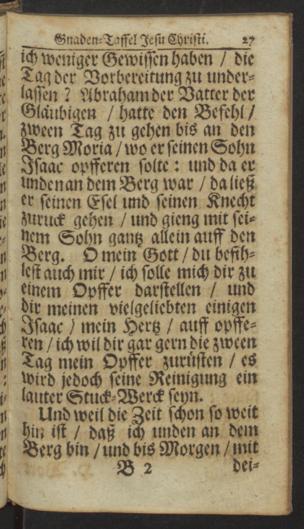 Gnaden-Taffel Jesu Christi. 27
ich weniger Gewissen haben / die
Tag der Vorbereitung zu under-
lassen? Abraham der Vatter der
Gläubigen / hatte den Befehl /
zween Tag zu gehen bis an den
Berg Moria / wo er seinen Sohn
Isaac opfferen solte: und da er
unden an dem Berg war / da ließ
er seinen Esel und seinen Knecht
zuruck gehen / und gieng mit sei-
nem Sohn gantz allein auff den
Berg. O mein Gott / du befih-
lest auch mir / ich solle mich dir zu
einem Opffer darstellen / und
dir meinen vielgeliebten einigen
Isaac / mein Hertz / auff opffe-
ren / ich wil dir gar gern die zween
Tag mein Opffer zurüsten / es
wird jedoch seine Reinigung ein
lauter Stuck-Werck seyn.
Und weil die Zeit schon so weit
hin ist / daß ich unden an dem
Berg bin / und bis Morgen / mit
B 2 dei-